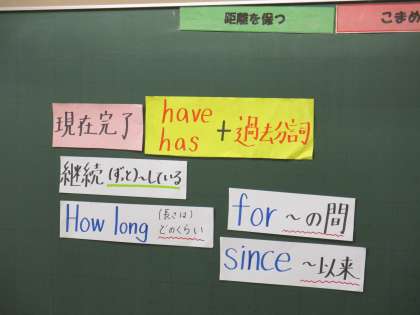 距離を保つ
こまめ
現在完了
have
has
+過去分詞
継続(ずっと)~している
How long (長さは)どのくらい
for ~の間
since ~以来